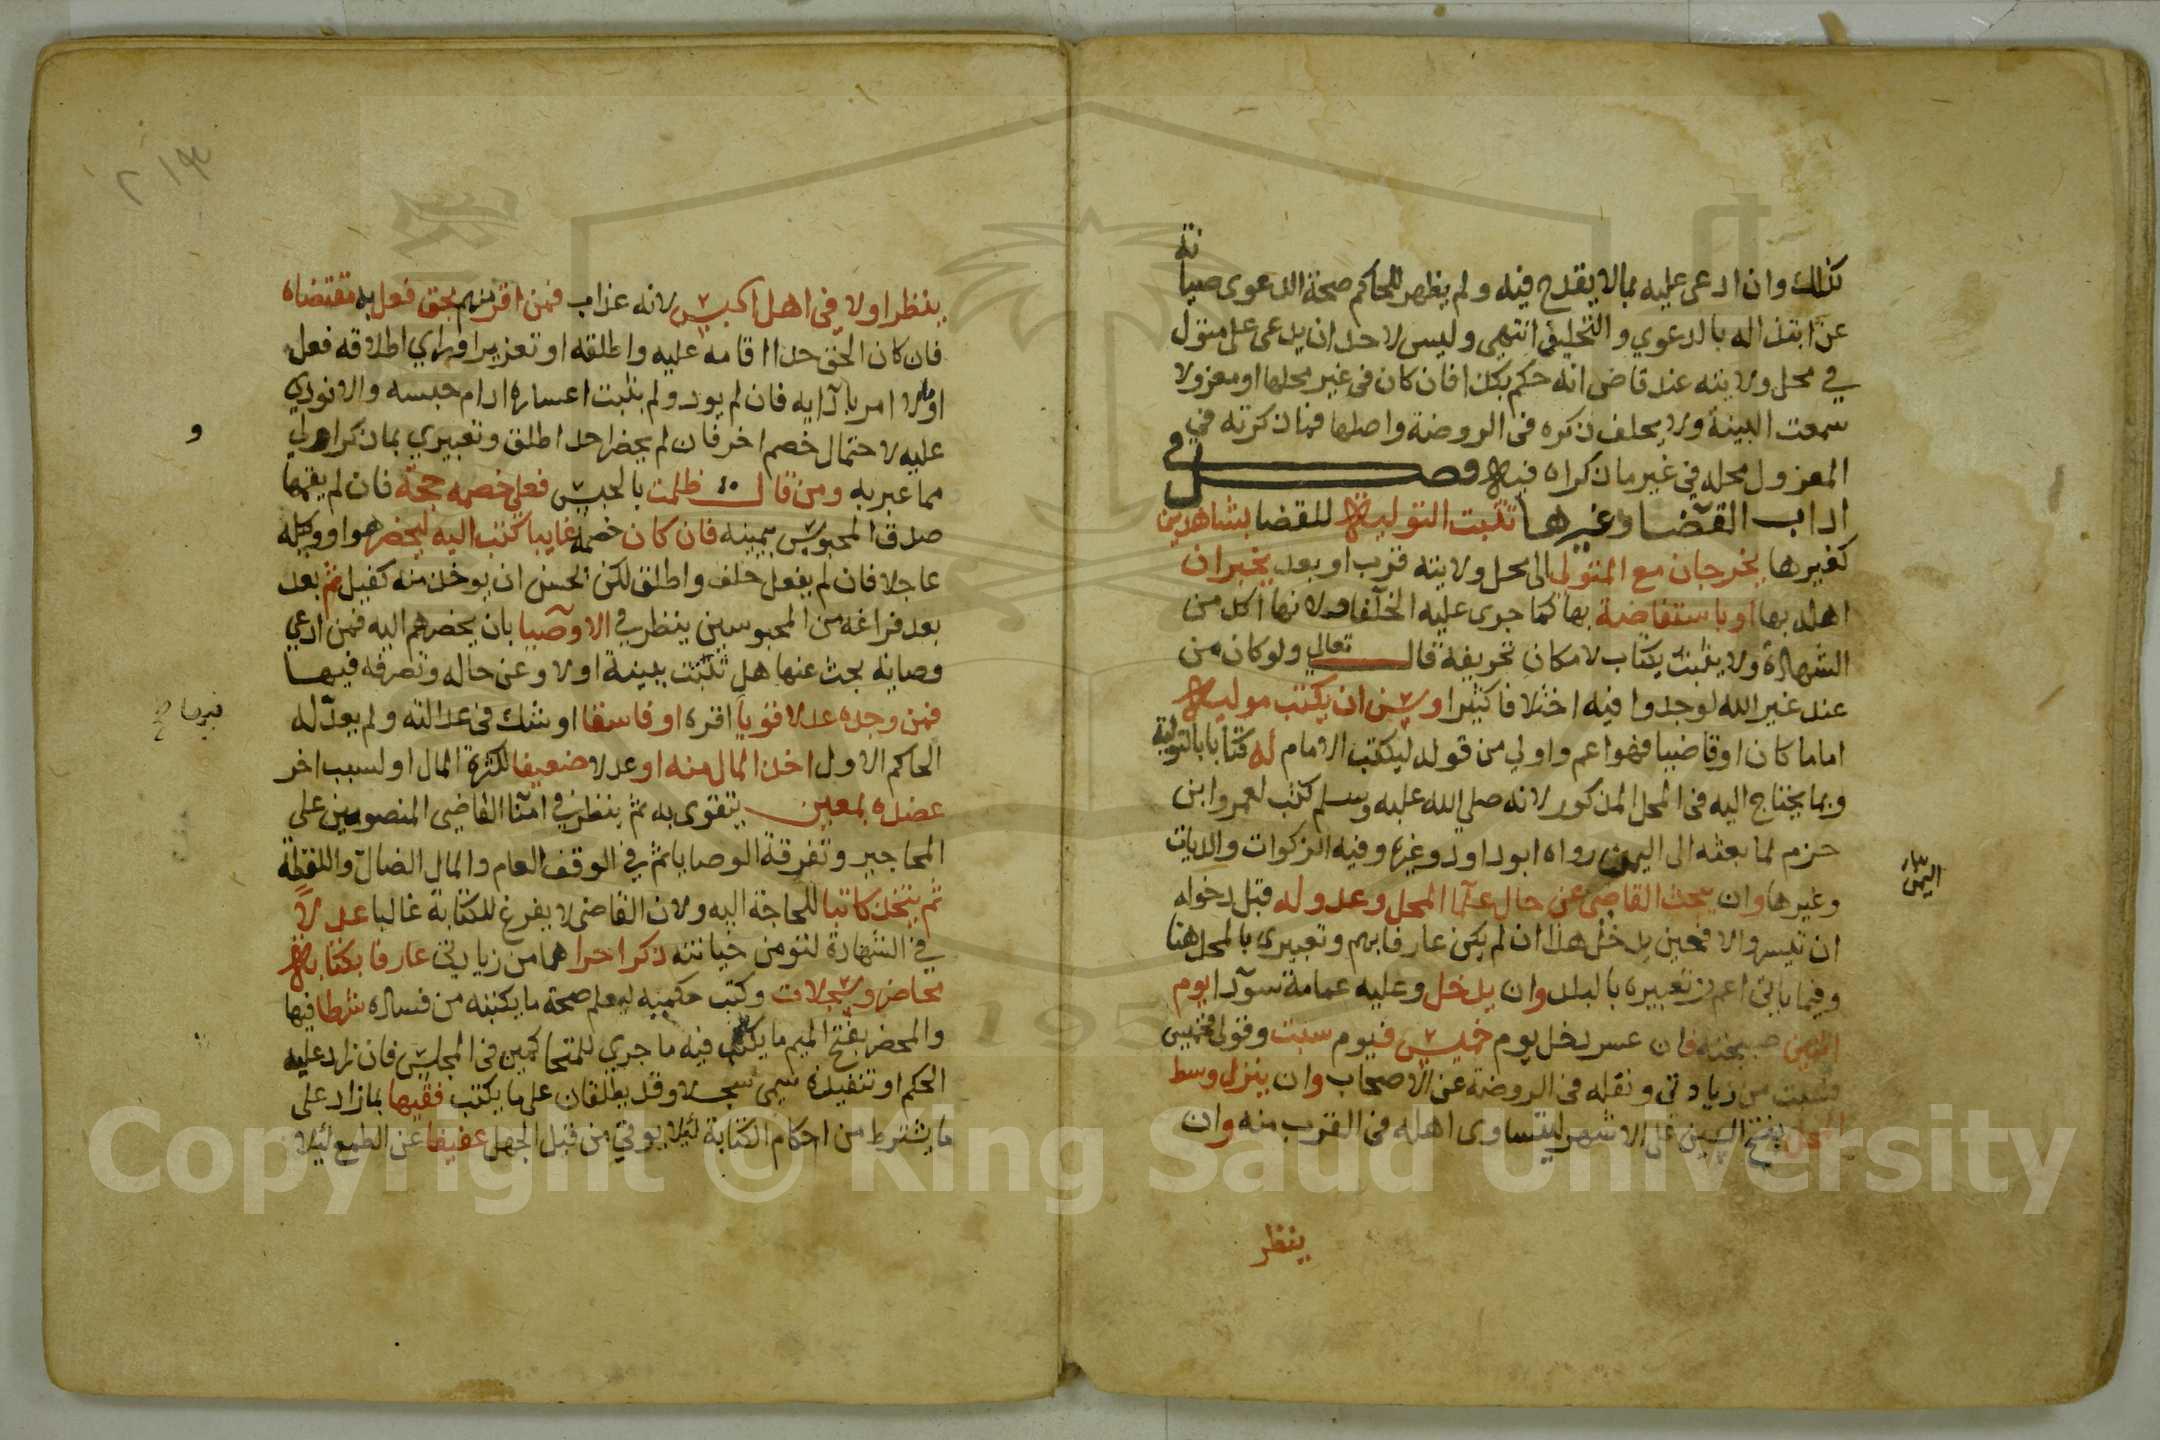 كذلك وان ادعى عليه بما لا يقدح فيه ولم يظهر للحاكم صحة الدعوى صيا
نة
عن ابتذاله بالدعوي والتحليف انتهى وليس لاحد ان يدعى على متول
في محل ولايته عند قاض انه حكم بكذا فان كان فى غير محلها او معزولا
سمعت البينة ولا يحلف ذكره فى الروضة واصلها فما ذكرته في
المعزول محله في غير ما ذكراه فيه فصل في
اداب القضا وغيرها تثبت التولية للقضا بشاهدين
كغيرها يخرجان مع المتولي الى محل ولايته قرب او بعد يخبران
اهله بها او باستفاضة بها كما جرى عليه الخلفا ولانها اكد من
الشهادة ولا يثبت بكتاب لامكان تحريفه قال تعالي ولو كان من
عند غير الله لوجدوا فيه اختلافا كثيرا وسن ان يكتب موليه
اماما كان او قاضيا فهو اعم واولي من قوله ليكتب الامام له كتابا بالتولية
وبما يحتاج اليه فى المحل المذكور لانه صلي الله عليه وسلم كتب لعمرو ابن
حزم لما بعثه الى اليمن رواه ابو داود وغيره وفيه الزكوات والديات
اليمن
وغيرها وان يبحث القاضى عن حال علما المحل وعدوله قبل دخوله
ان تيسر والا فحين يدخل هذا ان لم يكن عارفا بهم وتعبيرى بالمحل هنا
وفيما ياتى اعم من تعبيره بالبلد وان يدخل وعليه عمامة سودا يوم
اثنين صبيحته فان عسر دخل يوم خميس فيوم سبت وقولى فخميس
فسبت من زيادتى ونقله فى الروضة عن الاصحاب وان ينزل وسط
المحل بفتح السين على الاشهر ليتساوى اهله فى القرب منه وان
ينظر
ينظر اولا فى اهل الحبس لانه عذاب فمن اقر منهم بحق فعل به مقتضاه
فان كان الحق حدا اقامه عليه واطلقه او تعزيرا وراي اطلاقه فعل
او مالا امر بادايه فان لم يود ولم يثبت اعساره ادام حبسه والا نودي
عليه لاحتمال خصم اخر فان لم يحضر احد اطلق وتعبيري بما ذكر اولى
و
مما عبر به ومن قال ظلمت بالحبس فعلى خصمه حجة فان لم يقمها
صدق المحبوس بيمينه فان كان خصمه غايبا كتب اليه ليحضر هو او وكيله
عاجلا فان لم يفعل حلف واطلق لكن الحسن ان يوخذ منه كفيل ثم بعد
بعد فراغه من المحبوسين ينظر في الاوصيا بان يحضرهم اليه فمن ادعي
وصاية بحث عنها هل ثبتت ببينة اولا وعن حاله وتصرفه فيها
فمن وجده عدلا قويا اقره او فاسقا او شك فى عدالته ولم يعدله
الحاكم الاول اخذ المال منه او عدلا ضعيفا لكثرة المال او لسبب اخر
عضده بمعين يتقوى به ثم ينظر في امنا القاضى المنصوبين على
المحاجير وتفرقة الوصايا ثم في الوقف العام والمال الضال واللقطة
ثم يتخذ كاتبا للحاجة اليه ولان القاضى لا يفرغ للكتابة غالبا عدلا
في الشهادة لتومن خيانته ذكرا حرا هما من زيادتى عارفا بكتابة
محاضر وسجلات وكتب حكمية ليعلم صحة ما يكتبه من فساده شرطا فيها
والمحضر بفتح الميم ما يكتب فيه ما جري للمتحاكمين فى المجلس فان زاد عليه
الحكم او تنفيذه سمى سجلا وقد يطلقان على ما يكتب فقيها بما زاد على
ما يشترط من احكام الكتابة لئلا يوتى من قبل الجهل عفيفا عن الطمع لئلا
Copyright © King Saud University